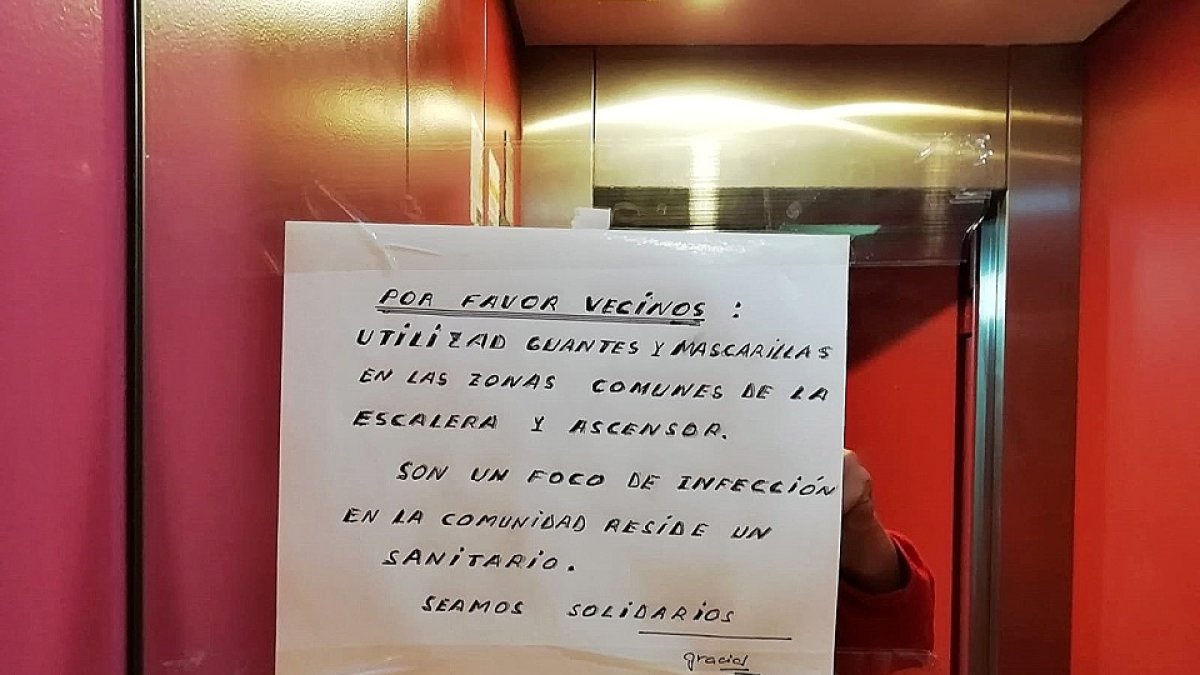 POR FAVOR VECINOS :
UTILIZAD GUANTES Y MASCARILLAS
EN LAS ZONAS COMUNES DE LA
ESCALERA Y ASCENSOR.
SON UN FOCO DE INFECCIÓN
EN LA COMUNIDAD RESIDE UN
SANITARIO.
SEAMOS SOLIDARIOS
gracias